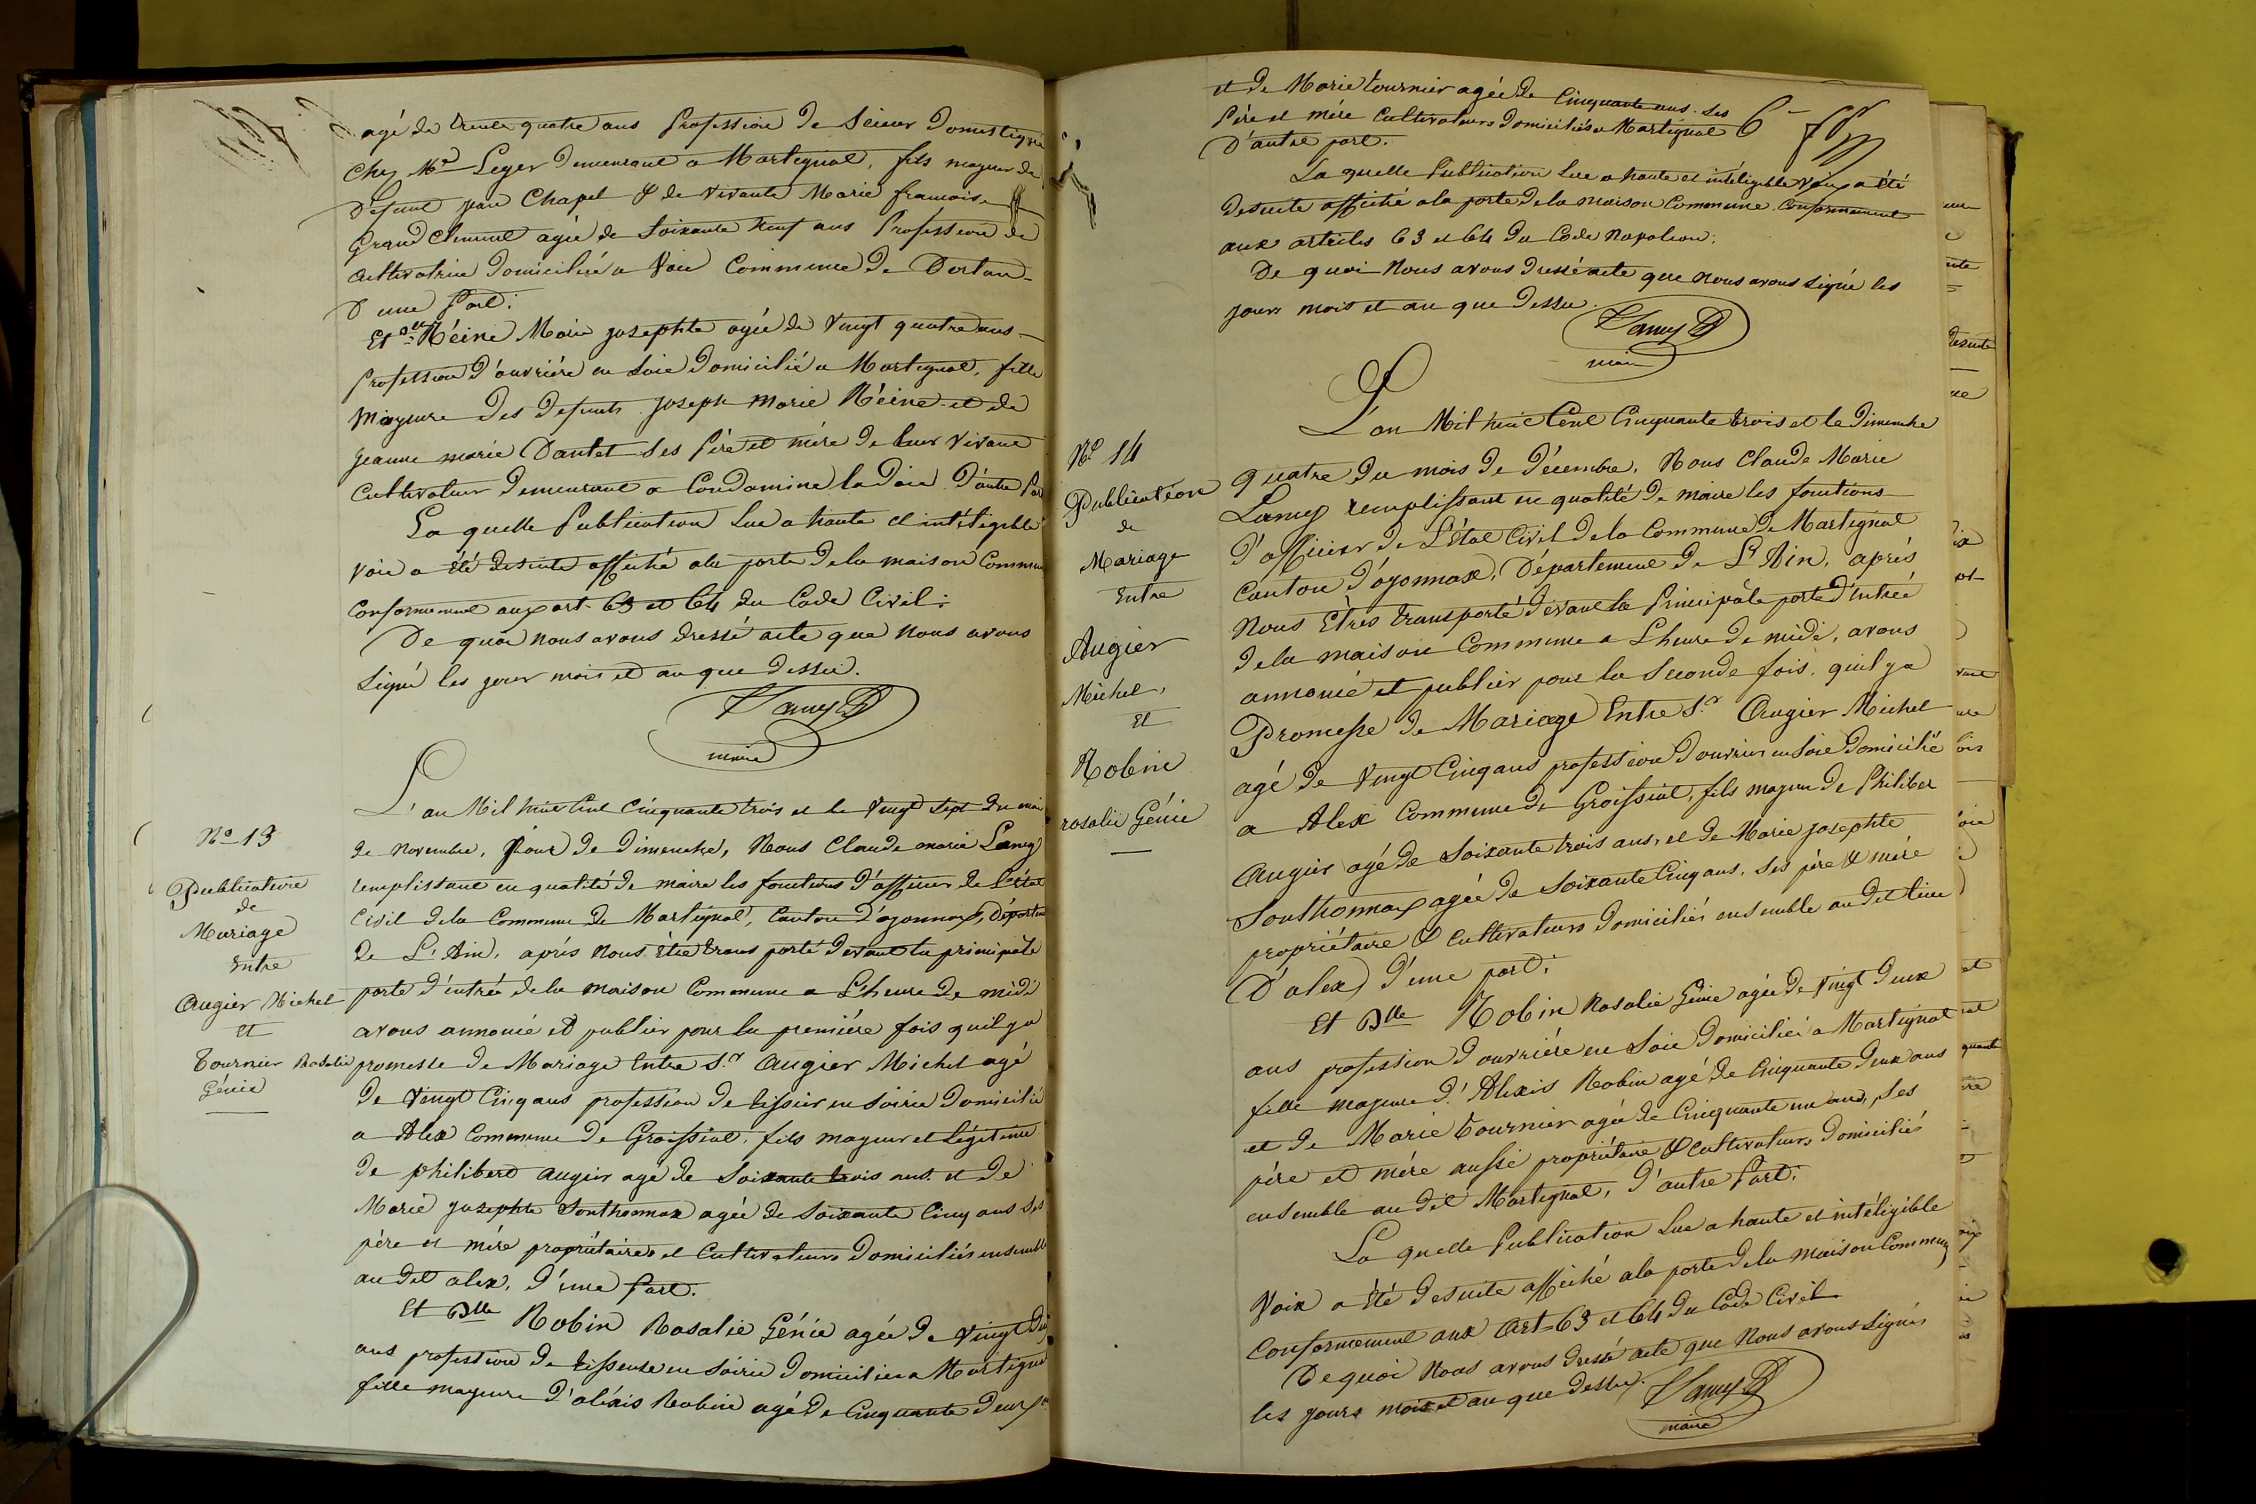 agé de trente quatre ans Profession de Scieur domestique
chez Mr Leger demeurant a Martignat, fils mageur de
Defunt jean Chapel & de vivante Marie francoise
Grand clement agée de Soixante neuf ans Profession de
cultivatrice domiciliée a Vaie Commune de Dortan
D'une Part.
Et Dlle Réine Marie josephte agée de vingt quatre ans
Profession d'ouvriére en Soie domicilié a Martignat, fille
Mageure des defunts joseph marie Réine et de
jeanne marie Dantet ses Pére et mére de leur vivant
Cultivateur demeurant a Condamine la doie d'autre Par
La quelle Publication lue a haute et intéligible
voie a été desuite affiché ala porte dela maison Commun
Conformement aux art. 63 et 64 du Code Civil.
De quoi nous avons dressé acte que nous avons
Signé les jour mois et an que dessu.
Lamy
maire
L'an Mil huit Cent Cinquante trois et le vingt Sept du moi
N° 13
de novembre, jour de dimenche, Nous Claude marie Lamy
Publication
remplissant en qualité de maire les fonctions d'officier de L'état
de
Civil dela Commune de Martignat, Canton d'oyonnax, départem
Mariage
de L'Ain, aprés nous étre transporté devant la principale
Entre
porte d'entrée dela maison Commune a L'heure de midi
Augier Michel
avons annoncé et publier pour la premiére fois quil ya
Et
promesse de Mariage Entre Sr Augier Michel agé
Tournier Rosalie
Génie
de vingt Cinq ans profession de tisseur en Soirie domicilié
a Alex Commune de Groissiat, fils mageur et légitime
de philibert augier agé de Soixante trois ans et de
Marie josephte Sonthonnax agée de Soixante Cinq ans Ses
pére et mére propriétaires et Cultivateurs domiciliés ensemble
au dit alex, d'une Part.
Et Dlle Robin Rosalie Génie agée de vingt deux
ans profession de tisseuse en Soirie domiciliée a Martigna
fille mageure d'aléxis Robin agé de Cinquante deux
et de Marie tournier agée de Cinquante ans. Ses
Pére et mére Cultivateurs domiciliés a Martignat
D'autre part.
6
La quelle Publication lue a haute et intéligible voix a été
desuite affiché ala porte dela maison Commune Conformement
aux articles 63 et 64 du Code Napoleon;
De quoi Nous avons dressé acte que nous avons signé les
jours mois et an que dessu.
Lamy
maire
L'an Mil huit Cent Cinquante trois et le dimenche
N° 14
quatre du mois de décembre, Nous Claude Marie
Publication
Lamy remplissant en qualité de maire les fonctions
de
d'officier de L'état Civil dela Commune de Martignat
Mariage
Canton d'oyonnax, Département de L'Ain, aprés
Entre
Nous Etres transporté devant la Principale porte d'entrée
Augier
dela maison Commune a L'heure de midi, avons
Michel,
annoncé et publier pour la Seconde fois, quil ya
Et
Promesse de Mariage Entre Sr Augier Michel
Robin
agé de vingt Cinq ans profession d'ouvrier en Soie domicilié
rosalie Génie
a Alex Commune de Groissiat, fils mageur de Philiber
Augier agé de Soixante trois ans, et de Marie josephte
Sonthonnax agée de Soixante Cinq ans, Ses pére & mére
propriétaire & Cultivateurs domiciliés ensemble au dit lieu
D'alex) d'une part.
Et Dlle Robin Rosalie Génie agée de vingt deux
ans profession d'ouvriére en Soie domiciliée a Martignat
fille mageure d'Alexis Robin agé de Cinquante deux ans
et de Marie tournier agée de Cinquante un ans, Ses
pére et mére aussi propriétaire & cultivateurs domiciliés
ensemble au dit Martignat, d'autre Part.
La quelle Publication lue a haute et intéligible
voix a été desuite affiché ala porte dela maison Commune
Conformement aux Art. 63 et 64 du Code Civil
De quoi Nous avons dressé acte que Nous avons Signés
les jours mois et an que dessu. Lamy
maire